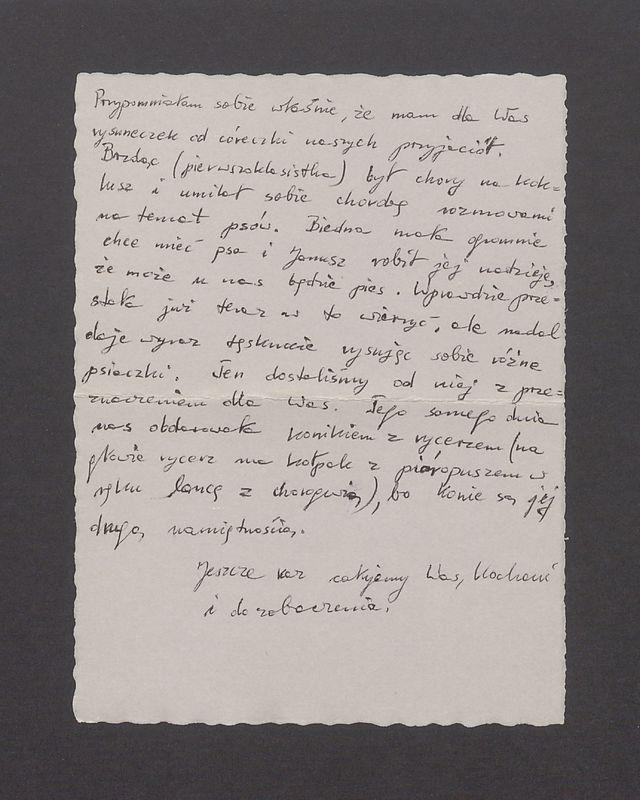 Przypomniałam sobie właśnie, że mam dla Was
rysuneczek od córeczki naszych przyjaciół.
Brzdąc (pierwszoklasistka) był chory na kok=
lusz i umilał sobie chorobę rozmowami
na temat psów. Biedna mała ogromnie
chce mieć psa i Janusz robił jej nadzieję,
że może u nas będzie pies. Wprawdzie prze=
stała już teraz w to wierzyć, ale nadal
daje wyraz tęsknocie rysując sobie różne
psiaczki. Ten dostaliśmy od niej z prze=
znaczeniem dla Was. Tego samego dnia
nas obdarowała konikiem z rycerzem (na
głowie rycerz ma kołpak z pióropuszem w
ręku lancę z chorągwią), bo konie są jej
drugą namiętnością.
Jeszcze raz całujemy Was, Kochani
i do zobaczenia.